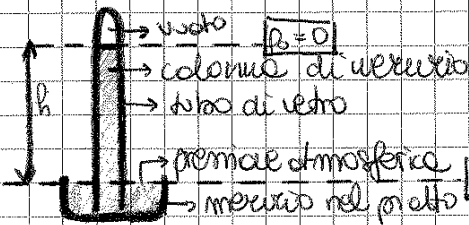 vuoto
p₀ = 0
colonna di mercurio
h
tubo di vetro
pressione atmosferica
mercurio nel piatto